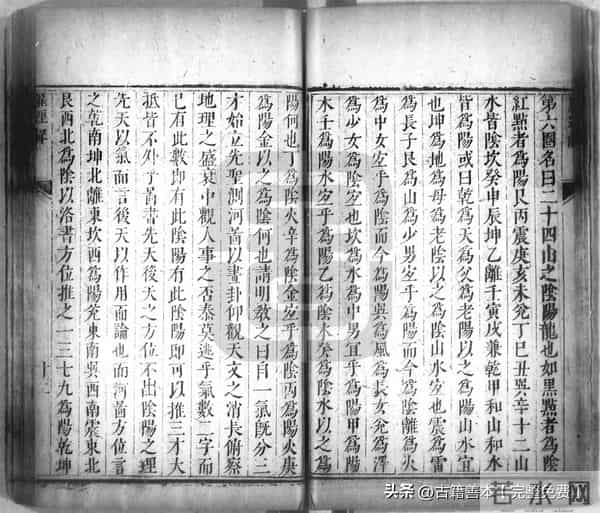 第六圈名曰二十四山之陰陽龍也如黑點者為陰
紅點者為陽艮丙震庚亥未兌丁巳丑巽辛十二山
水皆陰坎癸申辰坤乙離壬寅戌兼乾甲和山和水
皆為陽或曰乾為天為父為老陽以之為陽山水宜
也坤為地為母為老陰以之為陰山水宜也震為雷
為長子艮為山為少男宜乎為陽而今為陰離為火
為中女宜乎為陰而今為陽巽為風為長女兌為澤
為少女為陰宜也坎為水為中男宜乎為陽甲為陽
木壬為陽水宜乎為陽乙為陰木癸為陰水以之為
陽何也丁為陰火辛為陰金宜乎為陰丙為陽火庚
為陽金以之為陰何也請明教之曰自一氣旣分二
才始立先聖測河啚以畫卦仰觀天文之消長俯察
地理之盛衰中觀人事之否泰莫逃乎氣數二字而
已有此數即有此陰陽有此陰陽即可以推三才大
抵皆不外乎啚書先天後天之方位不出陰陽之理
先天以氣而言後天以作用而論也而河啚方位言
之乾南坤北離東坎西為陽兌東南巽西南震東北
艮西北為陰以洛書方位推之一三七九為陽乾坤
十二
头条 @古籍善本
完整免费